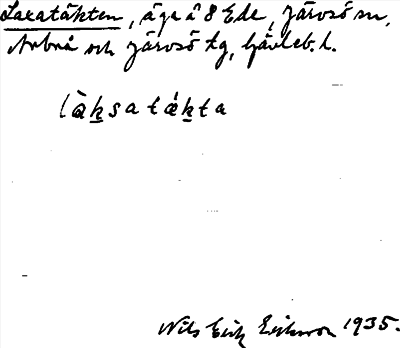 Laxatäkten, äga å 8 Ede, Järvsö sn,
Arbrå och Järvsö tg, Gävleb. l.
làḵsatǽḵta
Nils Erik Eriksson 1935.